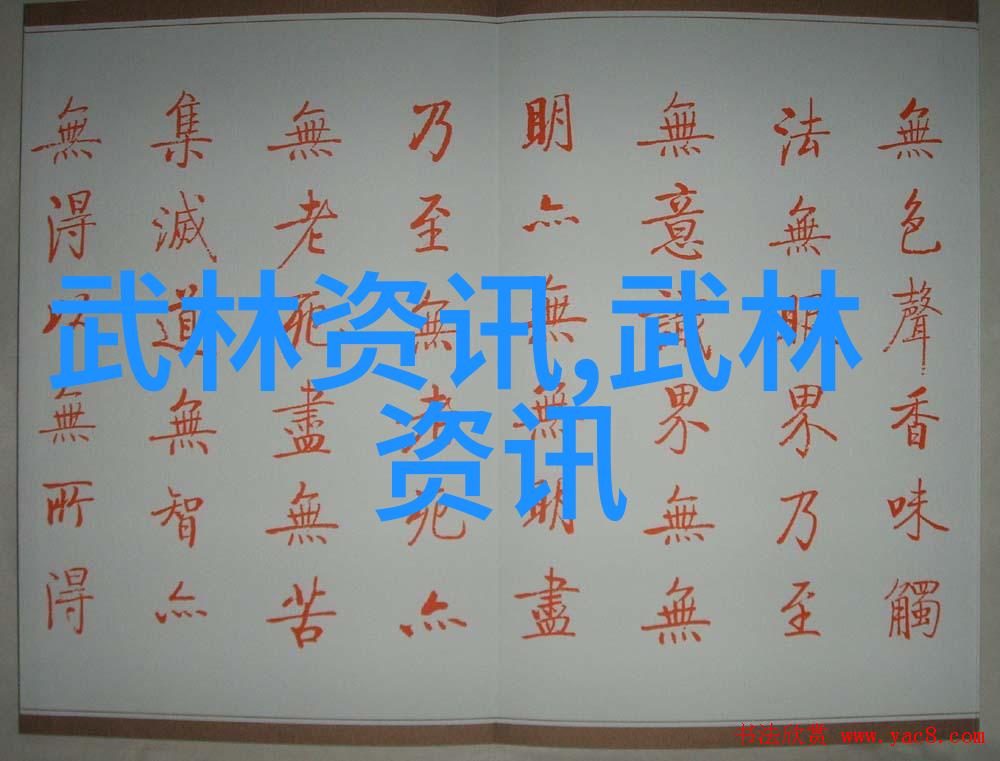 無色聲香味觸
法無眼界乃至
無意識界無無
明亦無無明盡
乃至無老死亦
無老死盡無苦
集滅道無智亦
無得以無所得
武林资讯,武林
资讯
书法欣赏 www.yac8.com